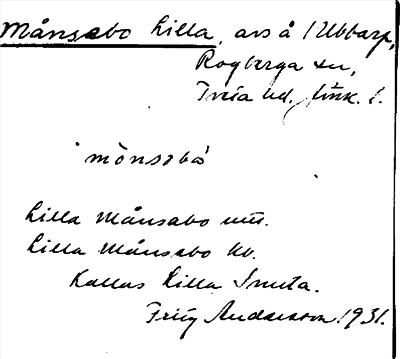 Månsabo Lilla, avs å 1 Ubbarp,
Rogberga sn,
Tveta hd, Jönk. l.
mònsəbò
Lilla Månsabo
Lilla Månsabo hb.
Kallas Lilla Smuta.
Fritz Andersson 1931.